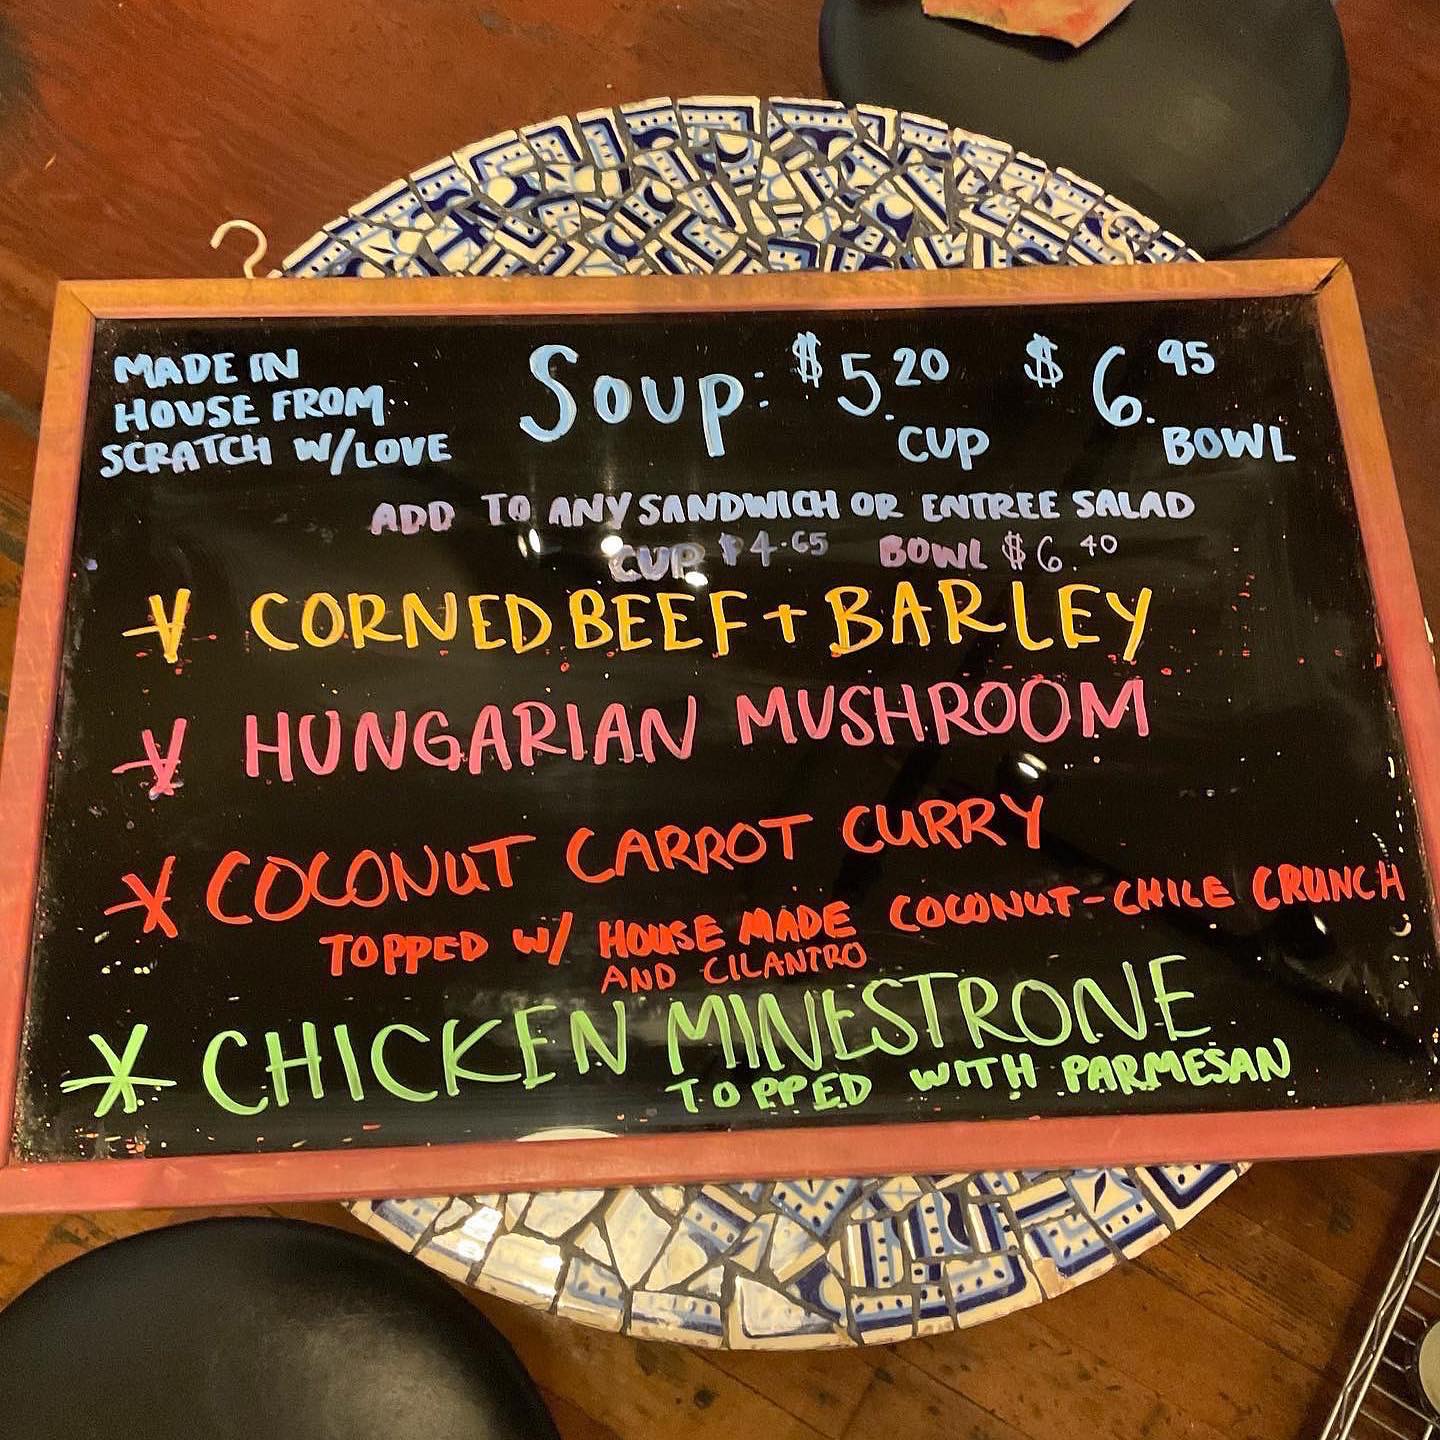 MADE IN
HOUSE FROM
SCRATCH W/LOVE
Soup: $5.20 CUP $6.95 BOWL
ADD TO ANY SANDWICH OR ENTREE SALAD
CUP $4.65 BOWL $6.40
CORNED BEEF + BARLEY
HUNGARIAN MUSHROOM
COCONUT CARROT CURRY
TOPPED W/ HOUSE MADE COCONUT-CHILE CRUNCH
AND CILANTRO
CHICKEN MINESTRONE
TOPPED WITH PARMESAN